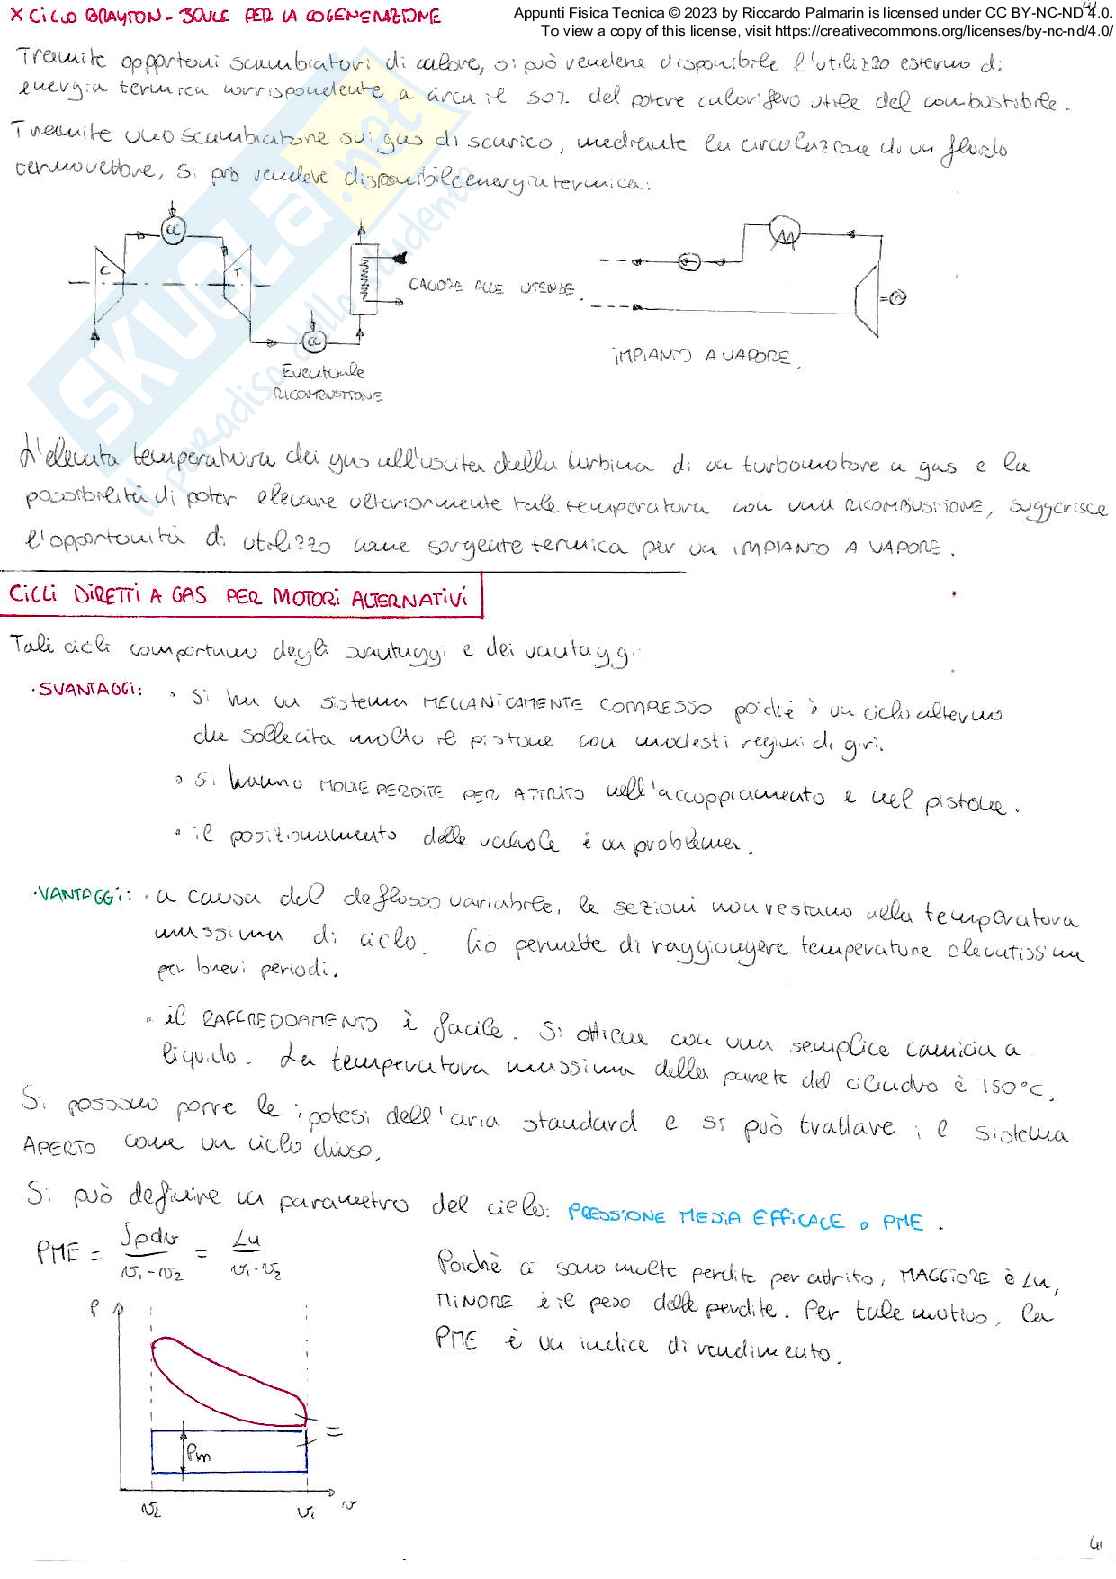 x CICLO BRAYTON - JOULE PER LA COGENERAZIONE
Appunti Fisica Tecnica © 2023 by Riccardo Palmarin is licensed under CC BY-NC-ND 4.0.
To view a copy of this license, visit https://creativecommons.org/licenses/by-nc-nd/4.0/
Tramite opportuni scambiatori di calore, si può rendere disponibile l'utilizzo esterno di
energia termica corrispondente a circa il 50% del potere calorifero utile del combustibile.
Tramite uno scambiatore sui gas di scarico, mediante la circolazione di un fluido
termovettore, si può rendere disponibile energia termica:
CC
C
T
CALORE ALLE UTENZE.
CC
Eventuale
RICOMBUSTIONE
IMPIANTO A VAPORE.
SKUOLA.net
il paradiso dello studente
L'elevata temperatura dei gas all'uscita della turbina di un turbomotore a gas e la
possibilità di poter elevare ulteriormente tale temperatura con una RICOMBUSTIONE, suggerisce
l'opportunità di utilizzo come sorgente termica per un IMPIANTO A VAPORE.
CICLI DIRETTI A GAS PER MOTORI ALTERNATIVI
Tali cicli comportano degli svantaggi e dei vantaggi:
· SVANTAGGI: • Si ha un sistema MECCANICAMENTE COMPRESSO poichè è un ciclo alterno
che sollecita molto il pistone con modesti regimi di giri.
• Si hanno MOLTE PERDITE PER ATTRITO nell'accoppiamento e nel pistone.
• il posizionamento delle valvole è un problema.
· VANTAGGI: • a causa del deflusso variabile, le sezioni non restano alla temperatura
massima di ciclo. Ciò permette di raggiungere temperature elevatissime
per brevi periodi.
• il RAFFREDDAMENTO è facile. Si ottiene con una semplice camicia a
liquido. La temperatura massima della parete del cilindro è 150°C.
Si possono porre le ipotesi dell'aria standard e si può trattare il sistema
APERTO come un ciclo chiuso.
Si può definire un parametro del ciclo: PRESSIONE MEDIA EFFICACE o PME.
PME = ∫pdv / v1-v2 = Lu / v1-v2
Poichè ci sono molte perdite per attrito, MAGGIORE è Lu,
MINORE è il peso delle perdite. Per tale motivo, la
PME è un indice di rendimento.
P
=
Pm
v2
v1
v
41